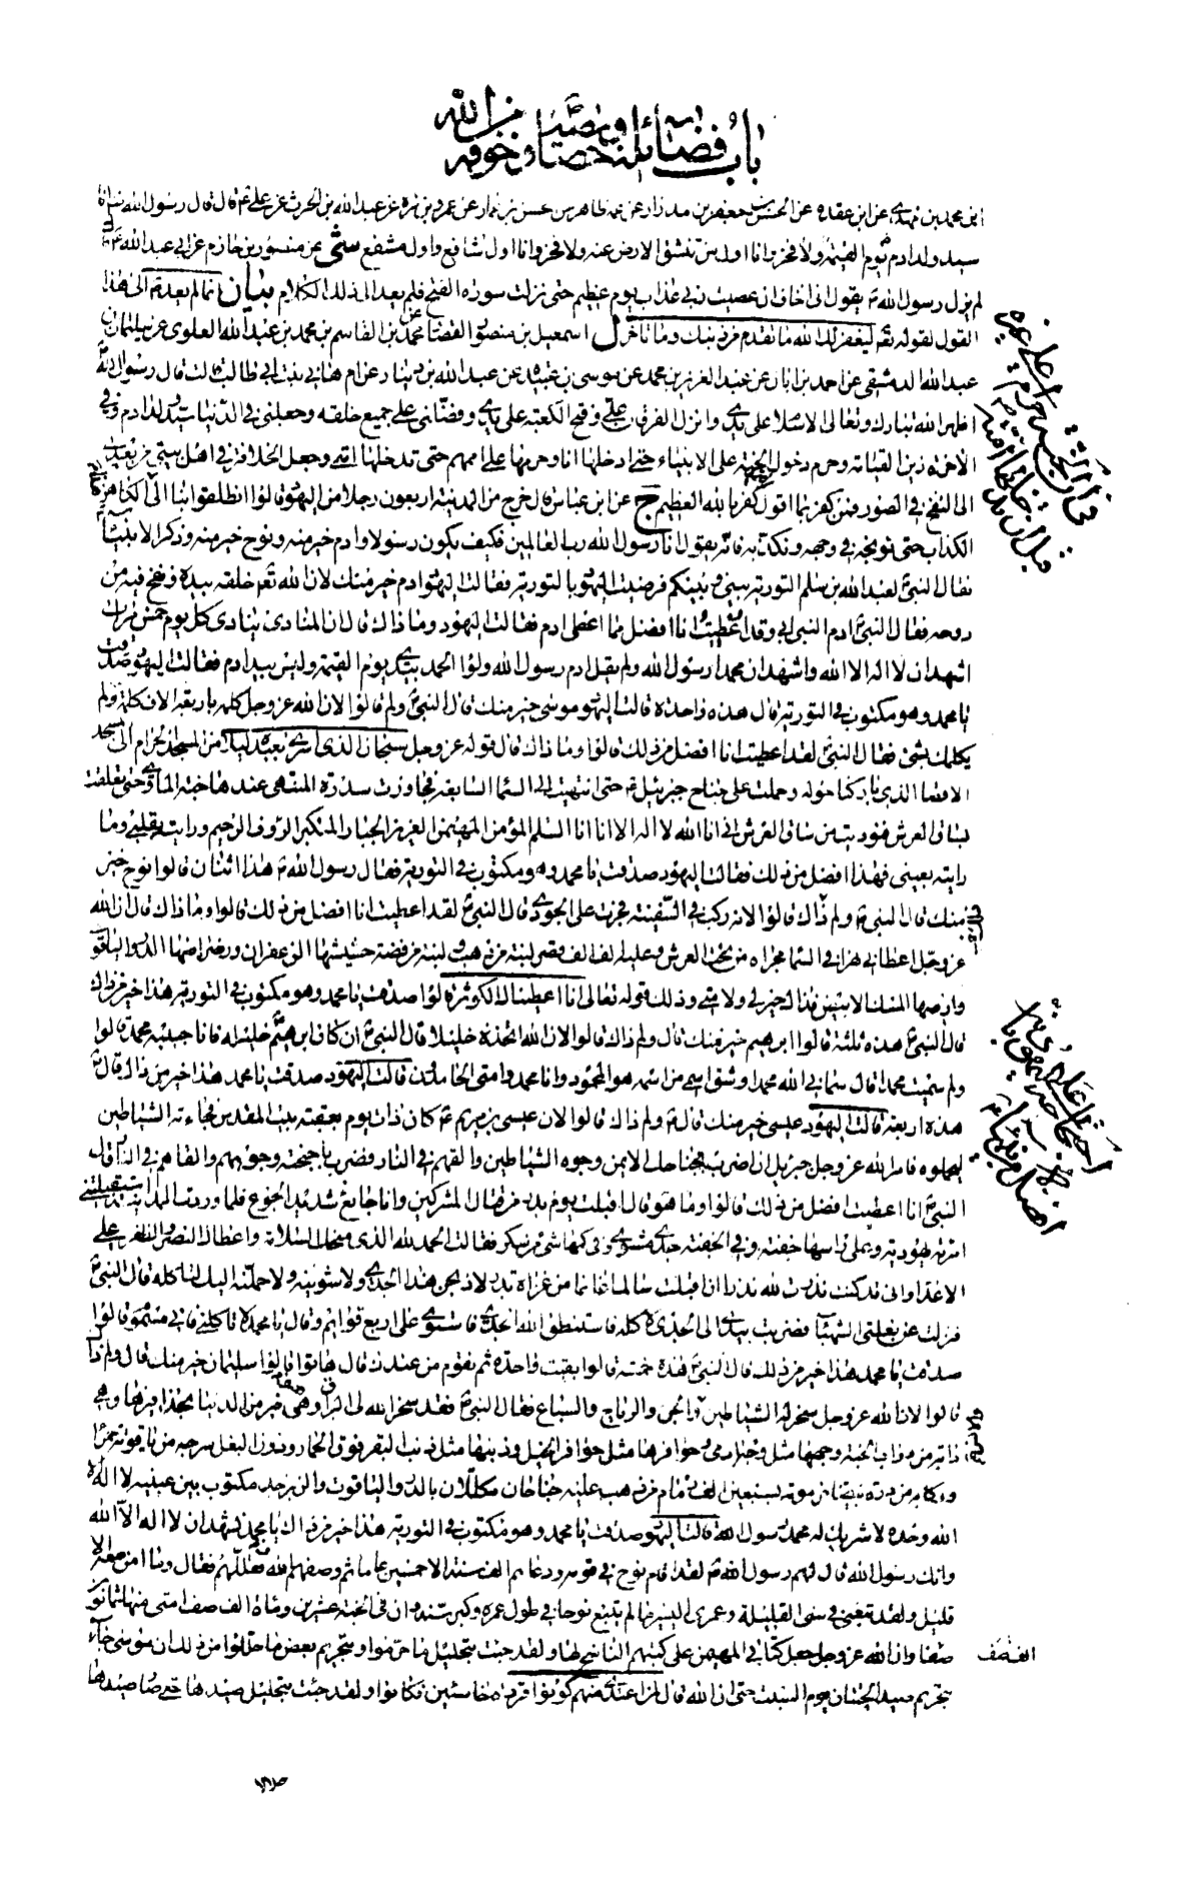 باب فضائله وخصائصه وخوفه من الله
سيد ولد ادم يوم القيمة ولا فخر وانا اول من تنشق الارض عنه ولا فخر وانا اول شافع واول مشفع شى عن منصور بن حازم عن ابي عبد الله ع
لم يزل رسول الله ص يقول انى اخاف ان عصيت ربى عذاب يوم عظيم حتى نزلت سورة الفتح فلم يعد الى ذلك الكلام بيان انما لم يعد ص الى هذا
القول لقوله تع ليغفر لك الله ما تقدم من ذنبك وما تاخر ل اسمعيل بن منصور القصار عن محمد بن القاسم بن محمد بن عبد الله العلوى عن سليمان بن
عبد الله الدمشقى عن احمد بن ابان عن عبد العزيز بن محمد عن موسى بن عبيدة عن عبد الله بن دينار عن ام هانى بنت ابى طالب قالت قال رسول الله
اظهر الله تبارك وتعالى الاسلام على يدى وانزل الفرقان على وفتح الكعبة على يدى وفضلنى على جميع خلقه وجعلنى فى الدنيا سيد ولد ادم وفى
الاخرة زين القيامة وحرم دخول الجنة على الانبياء حتى ادخلها انا وحرمها على اممهم حتى تدخلها امتى وجعل الخلافة فى اهل بيتى من بعدى
الى النفخ فى الصور فمن كفر بما اقول فقد كفر بالله العظيم ج عن ابن عباس قال خرج من المدينة اربعون رجلا من اليهود قالوا انطلقوا بنا الى
الكذاب حتى نوبخه فى وجهه ونكذبه فانه يقول انا رسول الله رب العالمين فكيف يكون رسولا وادم خير منه ونوح خير منه وذكر الانبياء
فقال النبى لعبد الله بن سلم التورية بينى وبينكم فرضيت اليهود بالتورية فقالت اليهود ادم خير منك لان الله تع خلقه بيده ونفخ فيه من
روحه فقال النبى ادم النبى ابى وقد اعطيت انا افضل مما اعطى ادم فقالت اليهود وما ذاك قال ان المنادى ينادى كل يوم خمس مرات
اشهد ان لا اله الا الله واشهد ان محمدا رسول الله ولم يقل ادم رسول الله ولواء الحمد بيدى يوم القيمة وليس بيد ادم فقالت اليهود صدقت
يا محمد وهو مكتوب فى التورية قال هذه واحدة قالت اليهود موسى خير منك قال النبى ولم قالوا لان الله عز وجل كلمه باربعة الاف كلمة ولم
يكلمك بشىء فقال النبى لقد اعطيت انا افضل من ذلك قالوا وما ذاك قال قوله عز وجل سبحان الذى اسرى بعبده ليلا من المسجد الحرام الى المسجد
الاقصا الذى باركنا حوله وحملت على جناح جبرئيل ع حتى انتهيت الى السماء السابعة فجاوزت سدرة المنتهى عندها جنة الماوى حتى تعلقت
بساق العرش فنوديت من ساق العرش انى انا الله لا اله الا انا السلم المؤمن المهيمن العزيز الجبار المتكبر الرؤف الرحيم ورايته بقلبى وما
رايته بعينى فهذا افضل من ذلك فقالت اليهود صدقت يا محمد وهو مكتوب فى التورية فقال رسول الله ص هذا اثنان قالوا نوح خير
منك قال النبى ولم ذاك قالوا لانه ركب فى السفينة فجرت على الجودى قال النبى لقد اعطيت انا افضل من ذلك قالوا وما ذاك قال ان الله
عز وجل اعطانى نهرا فى السماء مجراه من تحت العرش وعليه الف الف قصر لبنة من ذهب ولبنة من فضة حشيشها الزعفران ورضراضها الدر والياقوت
وارضها المسك الابيض فذلك خير لى ولامتى وذلك قوله تعالى انا اعطيناك الكوثر قالوا صدقت يا محمد وهو مكتوب فى التورية هذا خير من ذاك
قال النبى هذه ثلثة قالوا ابرهيم خير منك قال ولم ذاك قالوا لان الله اتخذه خليلا قال النبى ان كان ابرهيم خليله فانا حبيبه محمد قالوا
ولم سميت محمدا قال سمانى الله محمدا وشق اسمى من اسمه هو المحمود وانا محمد وامتى الحامدون قالت اليهود صدقت يا محمد هذا خير من ذاك قال
هذه اربعة قالت اليهود عيسى خير منك قال ولم ذاك قالوا لان عيسى بن مريم ع كان ذات يوم بعقبة بيت المقدس فجاءته الشياطين
ليحملوه فامر الله عز وجل جبريل ان اضرب بجناحك الايمن وجوه الشياطين والقهم فى النار فضرب باجنحته وجوههم والقاهم فى النار قال
النبى انا اعطيت افضل من ذلك قالوا وما هو قال اقبلت يوم بدر من قتال المشركين وانا جائع شديد الجوع فلما وردت المدينة استقبلتنى
امراة يهودية وعلى راسها جفنة وفى الجفنة جدى مشوى وفى كمها شىء من سكر فقالت الحمد لله الذى منحك السلامة واعطاك النصر والظفر على
الاعداء وانى قد كنت نذرت لله نذرا ان اقبلت سالما غانما من غزاة بدر لاذبحن هذا الجدى ولاشوينه ولاحملنه اليك لتاكله قال النبى
فنزلت عن بغلتى الشهباء فضربت بيدى الى الجدى لاكله فاستنطق الله الجدى فاستوى على اربع قوائم وقال يا محمد لا تاكلنى فانى مسموم قالوا
صدقت يا محمد هذا خير من ذلك قال النبى هذه خمسة قالوا بقيت واحدة ثم نقوم من عندك قال هاتوا قالوا سليمان خير منك قال ولم ذاك
قالوا لان الله عز وجل سخر له الشياطين والجن والرياح والسباع فقال النبى فقد سخر الله لى البراق وهى خير من الدنيا بحذافيرها وهى
دابة من دواب الجنة وجهها مثل وجه ادمى وحوافرها مثل حوافر الخيل وذنبها مثل ذنب البقر فوق الحمار ودون البغل سرجه من ياقوتة حمراء
وركابه من درة بيضاء مزمومة بسبعين الف زمام من ذهب عليه جناحان مكللان بالدر والياقوت والزبرجد مكتوب بين عينيه لا اله الا
الله وحده لا شريك له محمد رسول الله قالت اليهود صدقت يا محمد وهو مكتوب فى التورية هذا خير من ذاك يا محمد نشهد ان لا اله الا الله
وانك رسول الله قال لهم رسول الله ص لقد اقام نوح فى قومه ودعاهم الف سنة الا خمسين عاما ثم وصفهم الله فقللهم فقال وما امن معه الا
قليل ولقد تبعنى فى سنى القليلة وعمرى اليسير ما لم يتبع نوحا فى طول عمره وكبر سنه وان فى الجنة عشرين ومائة الف صف امتى منها ثمانون
الف صف
صفا وان الله عز وجل جعل كتابى المهيمن على كتبهم الناسخ لها ولقد جئت بتحليل ما حرموا وبتحريم بعض ما احلوا من ذلك ان موسى جاء
بتحريم صيد الحيتان يوم السبت حتى ان الله قال لمن اعتدى منهم كونوا قردة خاسئين فكانوا ولقد جئت بتحليل صيدها حتى صار صيدها